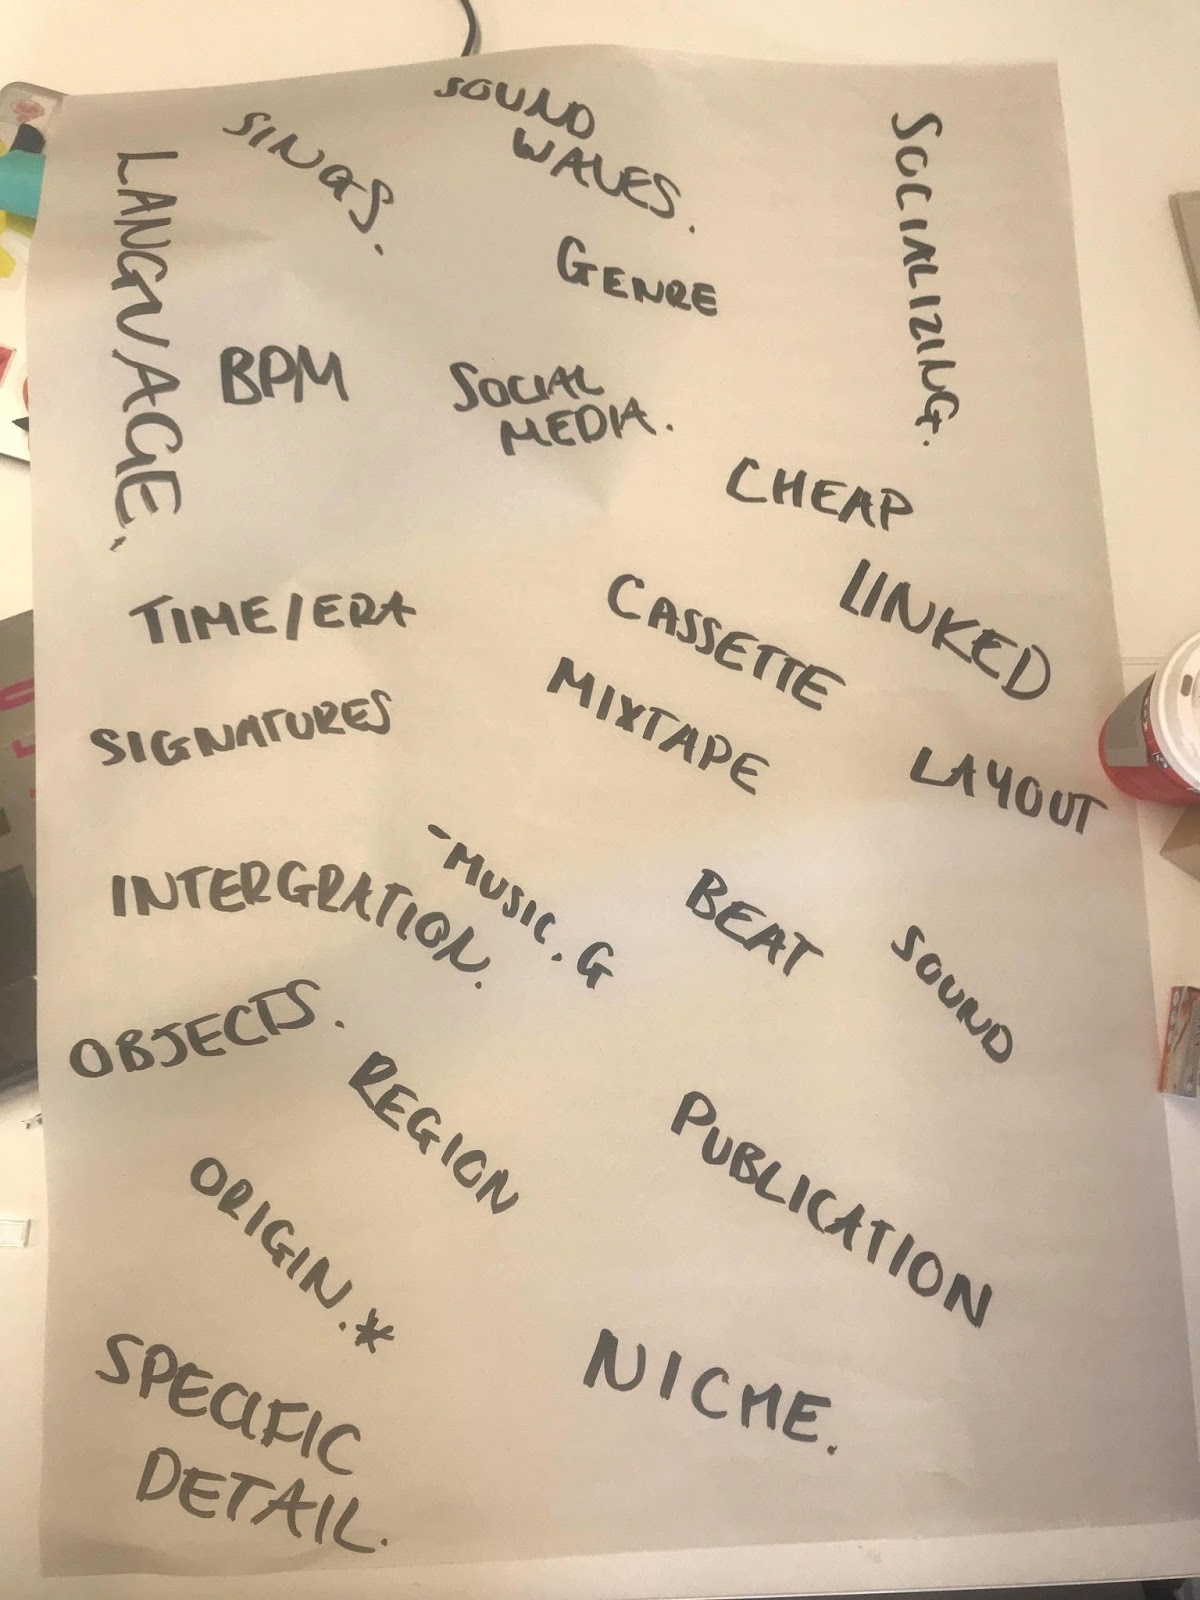 SOUND
WAVES.
SINGS.
SOCIALIZING.
LANGUAGE.
GENRE
BPM
SOCIAL
MEDIA.
CHEAP
LINKED
TIME/ERA
CASSETTE
MIXTAPE
SIGNATURES
LAYOUT
INTERGRATION.
-MUSIC.G
BEAT
SOUND
OBJECTS.
REGION
PUBLICATION
ORIGIN.*
NICHE.
SPECIFIC
DETAIL.